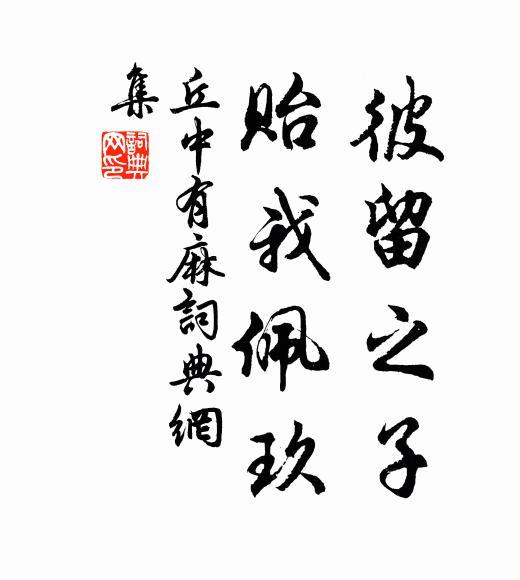 彼留之子
貽我佩玖
丘中有麻詞典網
集
詞典
网印